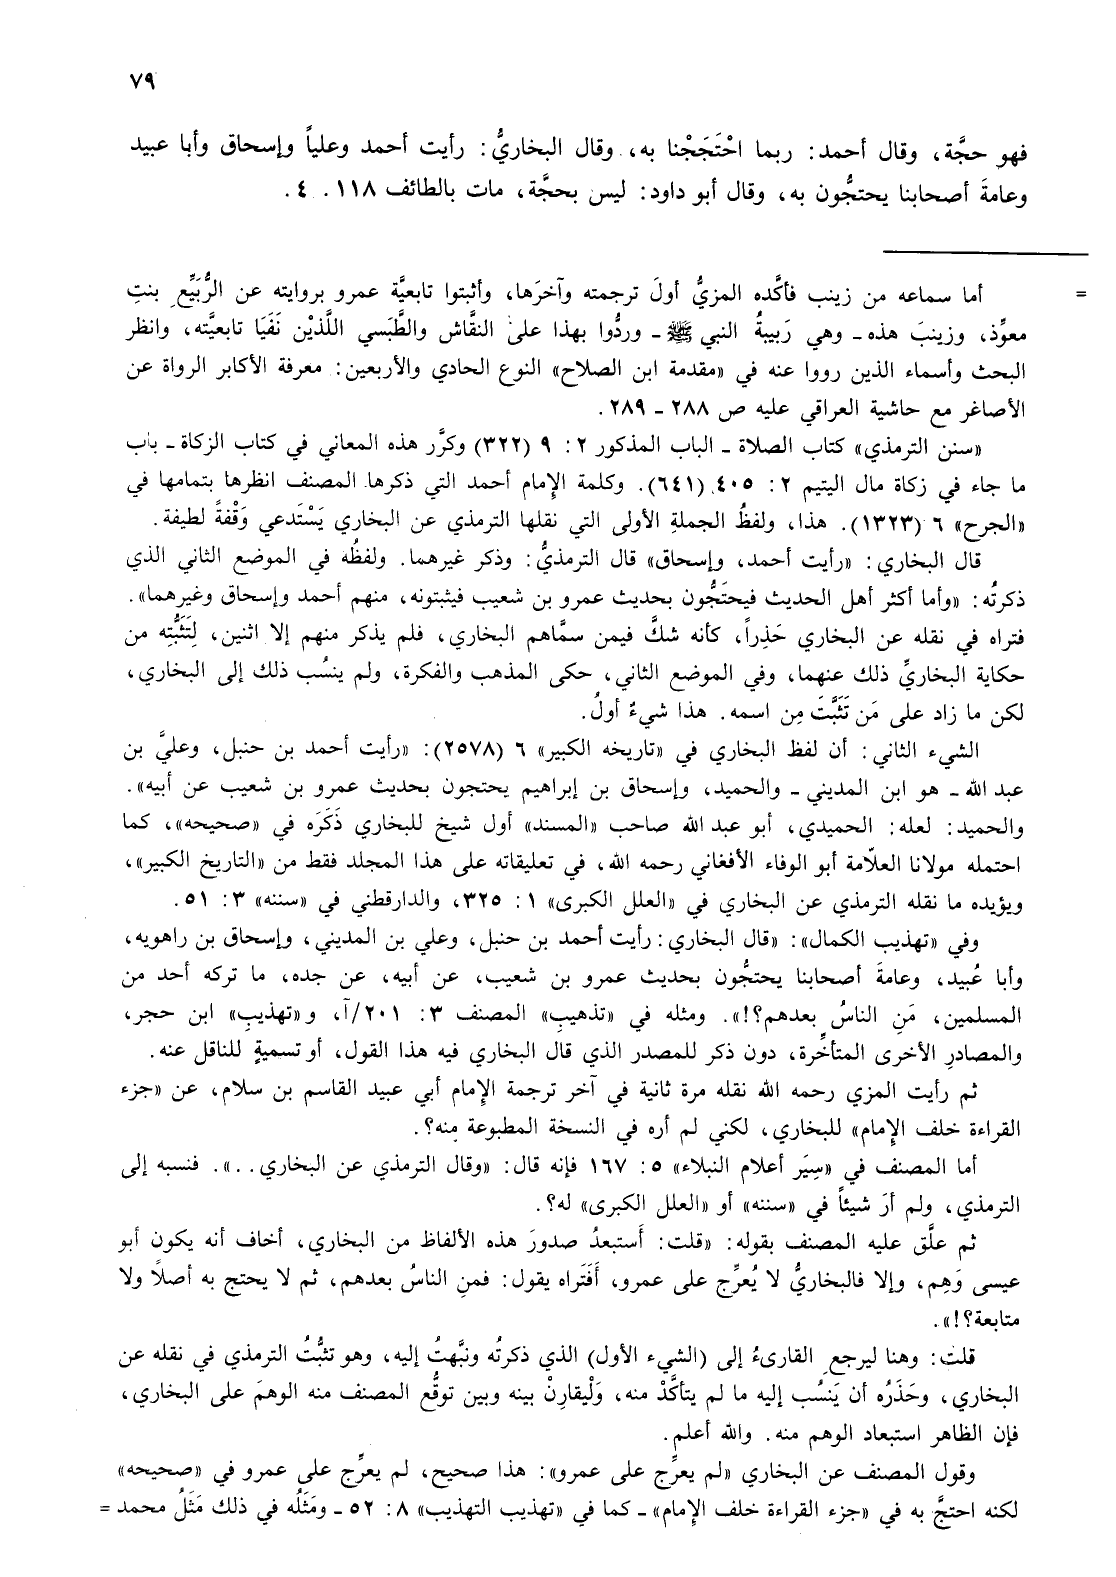 ٧٩
فهو حجَّة، وقال أحمد: ربما احْتَجَجْنا به، وقال البخاريُّ: رأيت أحمد وعلياً وإسحاق وأبا عبيد
وعامةَ أصحابنا يحتجُّون به، وقال أبو داود: ليس بحجَّة، مات بالطائف ١١٨. ٤.
= أما سماعه من زينب فأكَّده المزيُّ أولَ ترجمته وآخرَها، وأثبتوا تابعيَّة عمرو بروايته عن الرُّبَيِّع بنتِ
معوِّذ، وزينبَ هذه ـ وهي رَبيبةُ النبي ﷺ ـ وردُّوا بهذا على النقَّاش والطَّبَسي اللَّذيْن نَفَيَا تابعيَّته، وانظر
البحث وأسماء الذين رووا عنه في «مقدمة ابن الصلاح» النوع الحادي والأربعين: معرفة الأكابر الرواة عن
الأصاغر مع حاشية العراقي عليه ص ٢٨٨ ـ ٢٨٩.
«سنن الترمذي» كتاب الصلاة ـ الباب المذكور ٢: ٩ (٣٢٢) وكرَّر هذه المعاني في كتاب الزكاة ـ باب
ما جاء في زكاة مال اليتيم ٢: ٤٠٥ (٦٤١). وكلمة الإمام أحمد التي ذكرها المصنف انظرها بتمامها في
«الجرح» ٦ (١٣٢٣). هذا، ولفظُ الجملةِ الأولى التي نقلها الترمذي عن البخاري يَسْتَدعي وَقْفةً لطيفة.
قال البخاري: «رأيت أحمد، وإسحاق» قال الترمذيُّ: وذكر غيرهما. ولفظُه في الموضع الثاني الذي
ذكرتُه: «وأما أكثر أهل الحديث فيحتَجُّون بحديث عمرو بن شعيب فيثبتونه، منهم أحمد وإسحاق وغيرهما».
فتراه في نقله عن البخاري حَذِراً، كأنه شكَّ فيمن سمَّاهم البخاري، فلم يذكر منهم إلا اثنين، لِتَثَبُّتِه من
حكاية البخاريِّ ذلك عنهما، وفي الموضع الثاني، حكى المذهب والفكرة، ولم ينسُب ذلك إلى البخاري،
لكن ما زاد على مَن تَثَبَّتَ مِن اسمه. هذا شيءٌ أولُ.
الشيء الثاني: أن لفظ البخاري في «تاريخه الكبير» ٦ (٢٥٧٨): «رأيت أحمد بن حنبل، وعليَّ بن
عبد الله ـ هو ابن المديني ـ والحميد، وإسحاق بن إبراهيم يحتجون بحديث عمرو بن شعيب عن أبيه».
والحميد: لعله: الحميدي، أبو عبد الله صاحب «المسند» أول شيخ للبخاري ذَكَرَه في «صحيحه»، كما
احتمله مولانا العلاّمة أبو الوفاء الأفغاني رحمه الله، في تعليقاته على هذا المجلد فقط من «التاريخ الكبير»،
ويؤيده ما نقله الترمذي عن البخاري في «العلل الكبرى» ١: ٣٢٥، والدارقطني في «سننه» ٣: ٥١.
وفي «تهذيب الكمال»: «قال البخاري: رأيت أحمد بن حنبل، وعلي بن المديني، وإسحاق بن راهويه،
وأبا عُبيد، وعامةَ أصحابنا يحتجُّون بحديث عمرو بن شعيب، عن أبيه، عن جده، ما تركه أحد من
المسلمين، مَنِ الناسُ بعدهم؟!». ومثله في «تذهيبِ» المصنف ٣: ٢٠١/آ، و«تهذيبِ» ابن حجر،
والمصادرِ الأخرى المتأخِّرة، دون ذكر للمصدر الذي قال البخاري فيه هذا القول، أو تسميةٍ للناقل عنه.
ثم رأيت المزي رحمه الله نقله مرة ثانية في آخر ترجمة الإمام أبي عبيد القاسم بن سلام، عن «جزء
القراءة خلف الإمام» للبخاري، لكني لم أره في النسخة المطبوعة مِنه؟.
أما المصنف في «سِيَر أعلام النبلاء» ٥: ١٦٧ فإنه قال: «وقال الترمذي عن البخاري..». فنسبه إلى
الترمذي، ولم أرَ شيئاً في «سننه» أو «العلل الكبرى» له؟.
ثم علَّق عليه المصنف بقوله: «قلت: أَستبعدُ صدورَ هذه الألفاظ من البخاري، أخاف أنه يكون أبو
عيسى وَهِم، وإلا فالبخاريُّ لا يُعرِّج على عمرو، أَفَتَراه يقول: فمنِ الناسُ بعدهم، ثم لا يحتج به أصلاً ولا
متابعة؟!».
قلت: وهنا ليرجع القارىءُ إلى (الشيء الأول) الذي ذكرتُه ونبَّهتُ إليه، وهو تثبُّتُ الترمذي في نقله عن
البخاري، وحَذَرُه أن يَنسُب إليه ما لم يتأكَّدْ منه، وَلْيقارِنْ بينه وبين توقُّع المصنف منه الوهمَ على البخاري،
فإن الظاهر استبعاد الوهم منه. والله أعلم.
وقول المصنف عن البخاري «لم يعرِّج على عمرو»: هذا صحيح، لم يعرِّج على عمرو في «صحيحه»
لكنه احتجَّ به في «جزء القراءة خلف الإمام» ـ كما في «تهذيب التهذيب» ٨: ٥٢ ـ ومَثَلُه في ذلك مَثَلُ محمد =